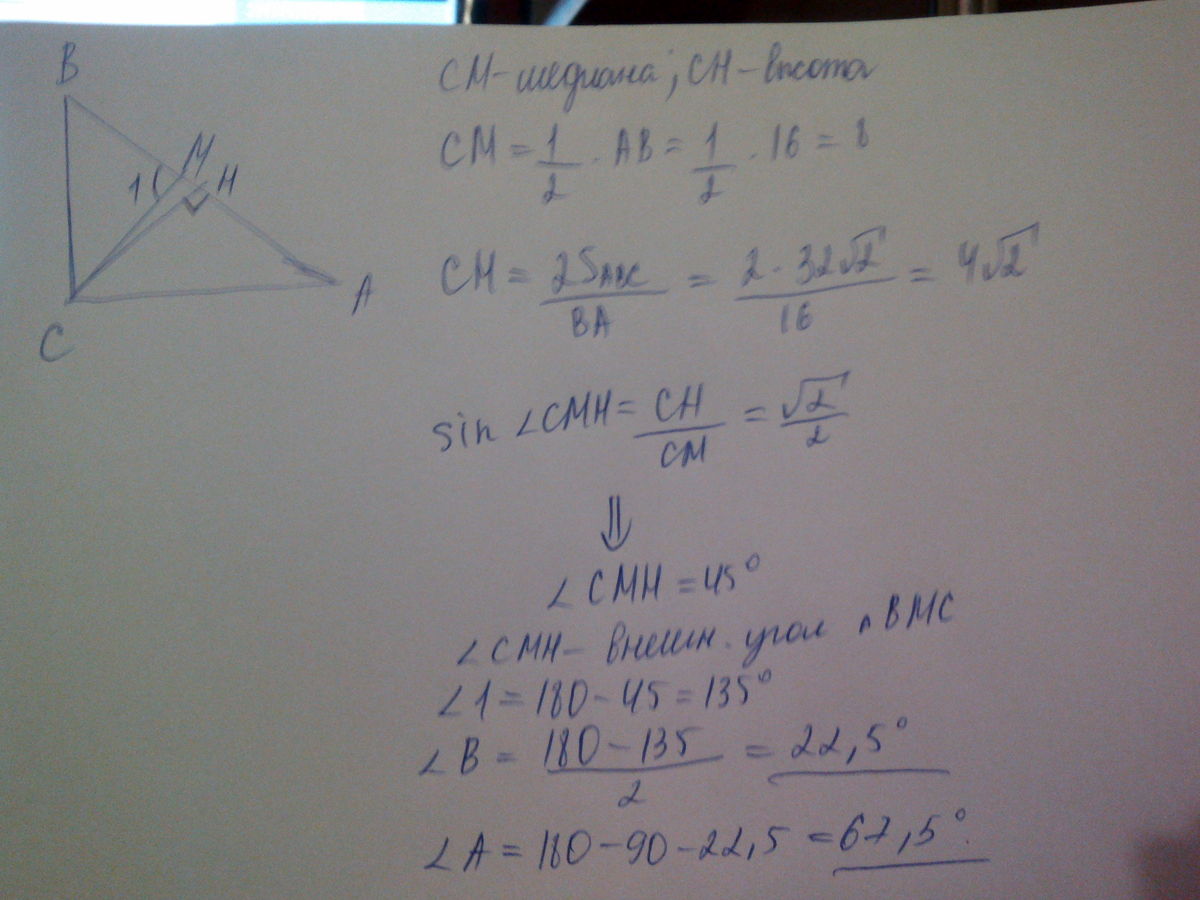 B
M
1
H
A
C
CM – медиана; CH – высота
CM = 1/2 · AB = 1/2 · 16 = 8
CH = 2S ABC / BA = 2 · 32√2 / 16 = 4√2
sin ∠CMH = CH / CM = √2 / 2
⇓
∠CMH = 45°
∠CMH – внешн. угол △BMC
∠1 = 180 – 45 = 135°
∠B = 180 – 135 / 2 = 22,5°
∠A = 180 – 90 – 22,5 = 67,5°.